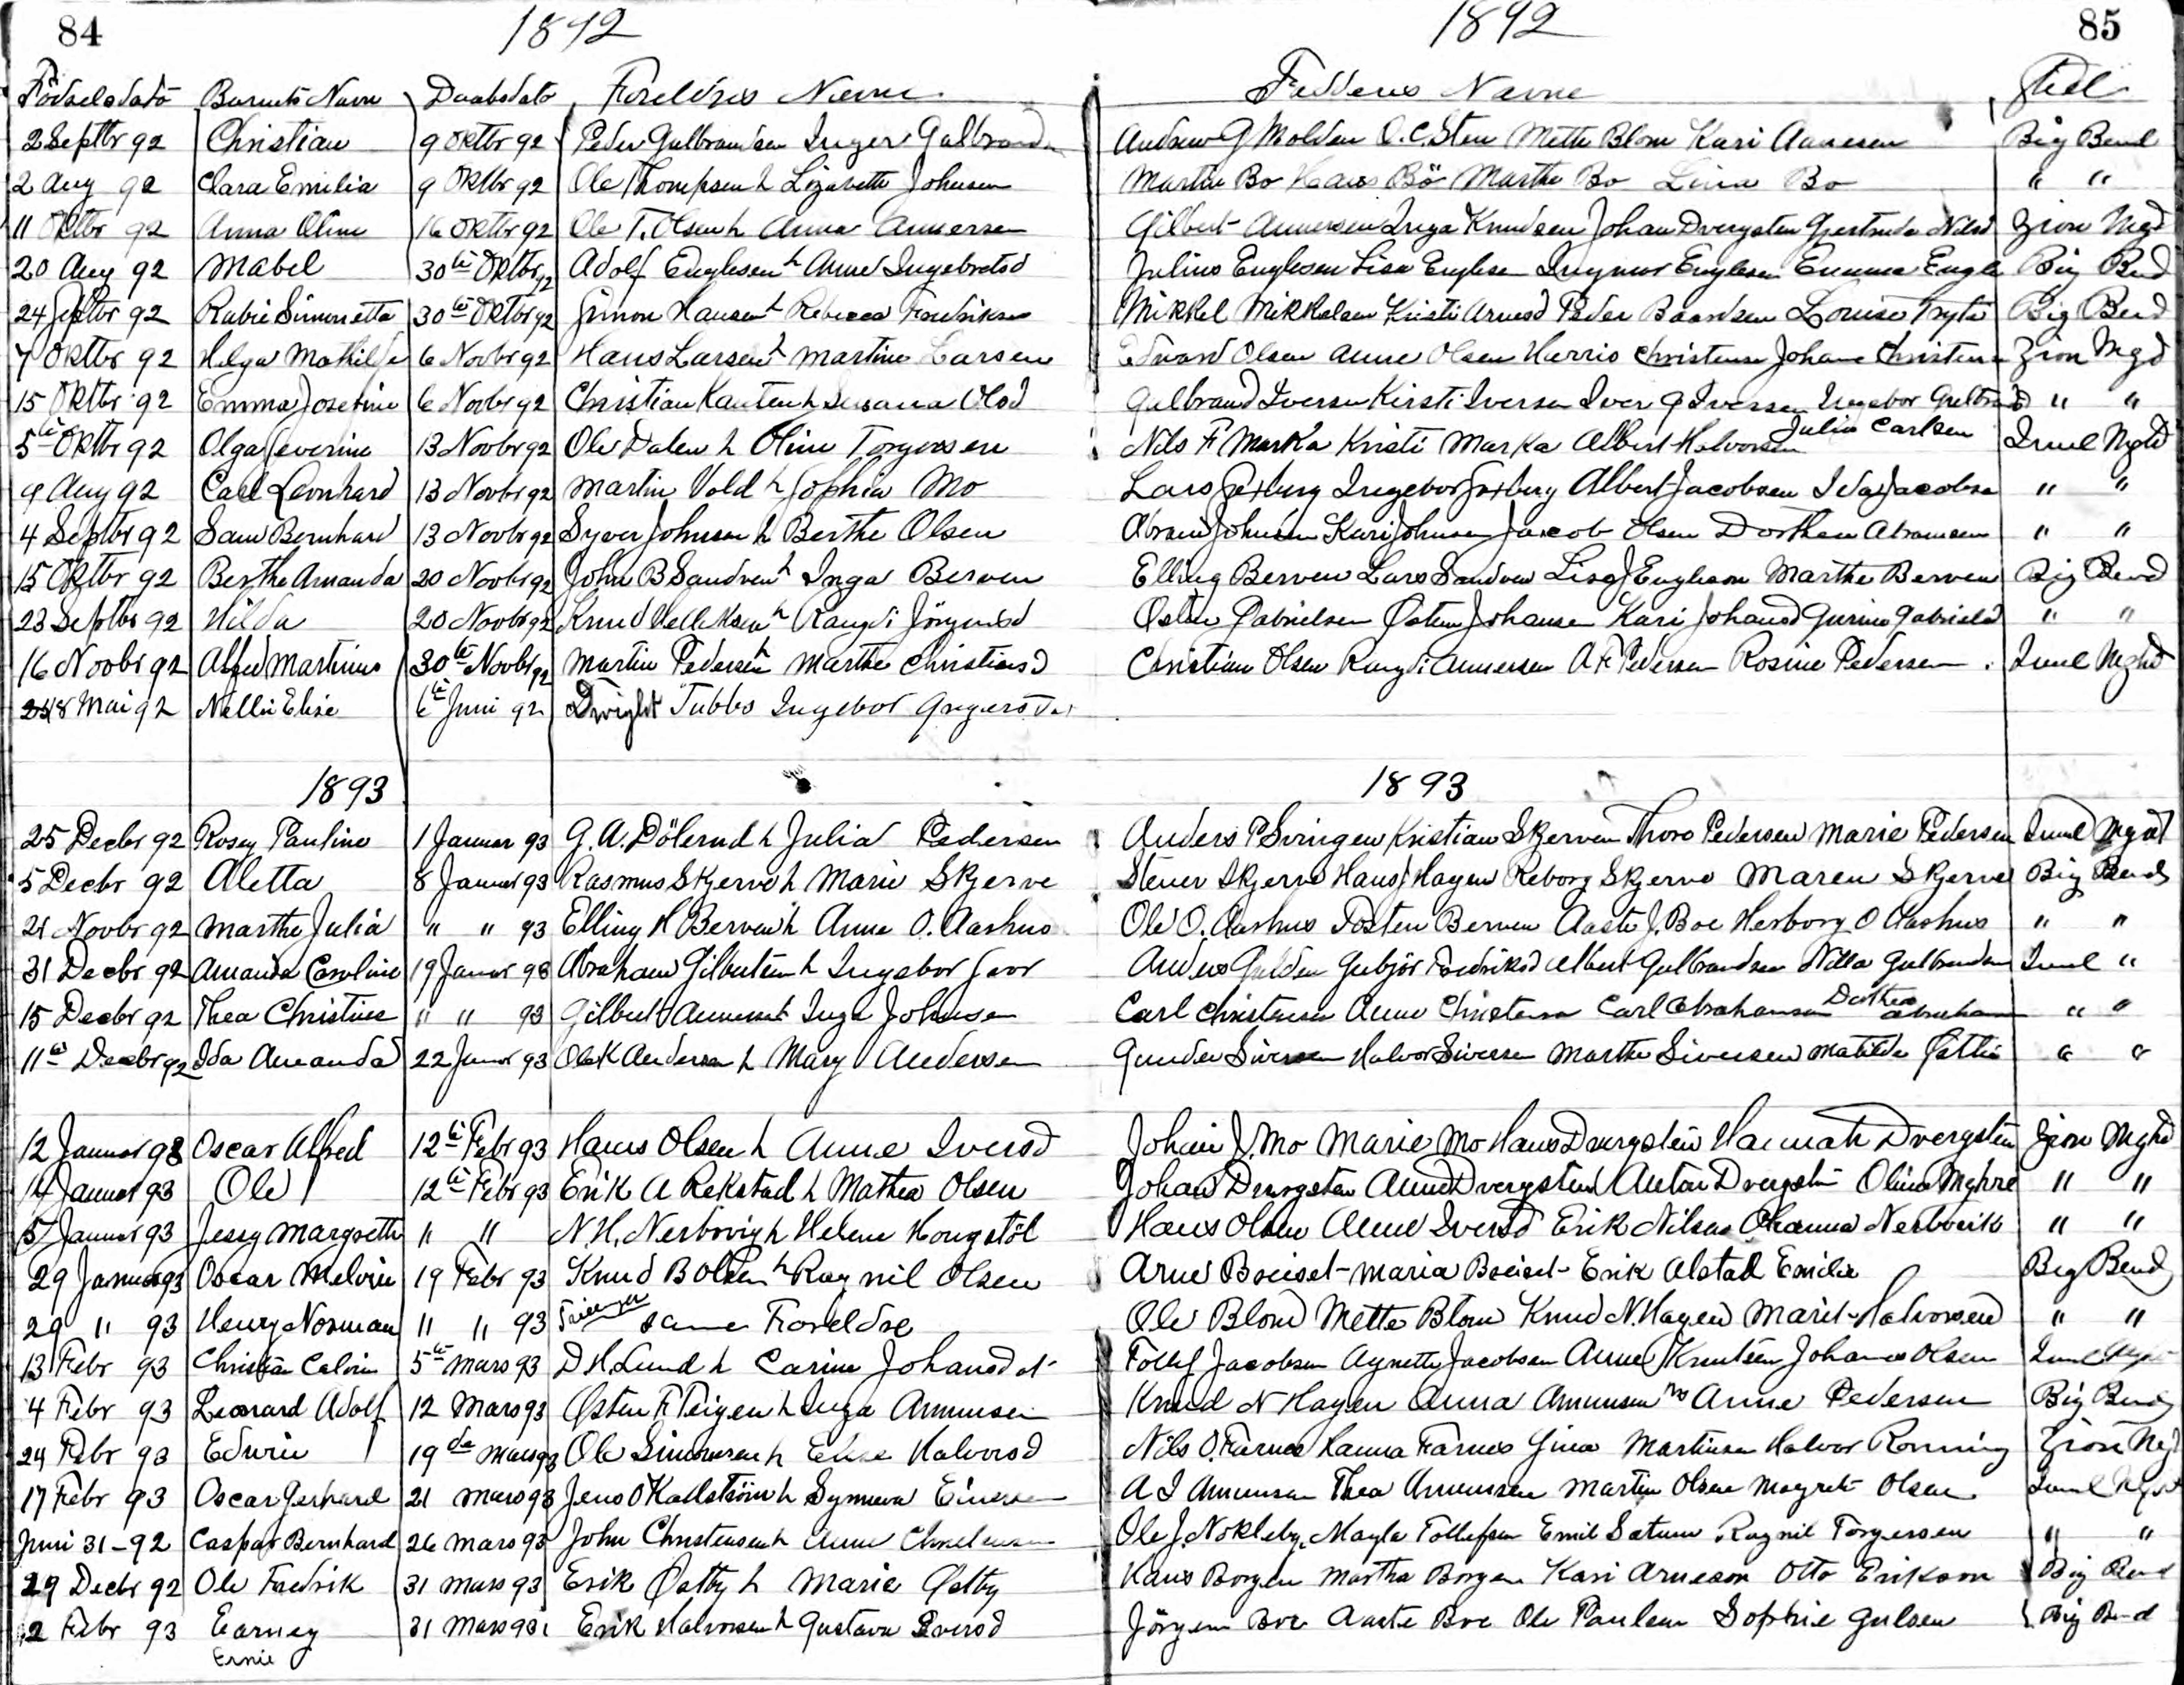 84 1892 1892 85
Födselsdato Barnets Navn Daabsdato Foreldres Navne Fadderes Navne Sted
2 Septbr 92 Christian 9 Oktbr 92 Peder Gulbrandsen Inger Gulbrandsn Andrew G Molden O. C. Sten Mette Blom Kari Aanesen Big Bend
2 Aug 92 Clara Emilia 9 Oktbr 92 Ole Thompsen h Lizabetta Johnsen Martin Bo Hans Bö Marthe Bo Lina Bo " "
11 Oktbr 92 Anna Oline 16 Oktbr 92 Ole T. Olsen h Anna Annersen Gilbert Annersen Inga Knudsen Johan Dvergsten Gjertrude Nilsd Zion Mgd
20 Aug 92 Mabel 30te Oktbr 92 Adolf Englesen h Anne Ingebretsd Julius Englesen Lisa Englesen Ingmor Englesen Emma Engle Big Bend
24 Septbr 92 Rubie Simonetta 30te Oktbr 92 Simon Hansen h Rebecca Fredriksen Mikkel Mikkelsen Kristi Arnesd Peder Baardsen Louise Fryte Big Bend
7 Oktbr 92 Helga Mathilde 6 Novbr 92 Hans Larsen h Martine Larsen Edward Olsen Anne Olsen Harris Christensen Johane Christensn Zion Mgd
15 Oktbr 92 Emma Josefine 6 Novbr 92 Christian Kanten h Susana Olsd Gulbrand Iversen Kirsti Iversen Iver G Iversen Ingebor Gulbrand " "
5te Oktbr 92 Olga Severine 13 Novbr 92 Ole Dalen h Oline Torgersen Nils F Marka Kristi Marka Albert Halvorsen Julia Carlsen Imml Mghd
9 Aug 92 Carl Leonhard 13 Novbr 92 Martin Vold h Sophia Mo Lars Ingebor Albert Jacobsen Ida Jacobsen " "
4 Septbr 92 Sam Bernhard 13 Novbr 92 Syver Johnson h Berthe Olsen Abram Johnsen Kari Johnsen Jacob Olsen Dorthea Abramsen " "
15 Oktbr 92 Berthe Amanda 20 Novbr 92 John B Sandven h Inga Berven Elling Berven Lars Sandven Lisa J Engleson Marthe Berven Big Bend
23 Septbr 92 Hilda 20 Novbr 92 Knud h Rangdi Jörgensd Østen Gabrielsen Østen Johansen Kari Johansd Gurine Gabrielsd " "
16 Novbr 92 Alfred Martinus 30te Novbr 92 Martin Pedersen h Marthe Christiansd Christian Olsen Rangdi Annersen A. F. Pedersen Rosine Pedersen Imml Mghd
28 Mai 92 Nellie Elise 6te Juni 92 Dwight Tubbs Ingebor
1893 1893
25 Decbr 92 Rosey Pauline 1 Januar 93 G. A. Dölerud h Julia Pedersen Anders P Svingen Kristian Skjerven Thore Pedersen Marie Pedersen Imml Mghd
5 Decbr 92 Aletta 8 Januar 93 Rasmus Skjerve h Marie Skjerve Stener Skjerve Hans J Hagen Reborg Skjerve Maren Skjerve Big Bend
21 Novbr 92 Marthe Julia " " 93 Elling H Berven h Anne O. Aashus Ole O. Aashus Tosten Berven Aaste J. Boe Herborg O Aashus " "
31 Decbr 92 Amanda Caroline 19 Januar 93 Abraham Gilbertsen h Ingebor Anders Gulden Gubjör Fredriksd Albert Gulbrandsen Nilla Gulbrandsen Immel "
15 Decbr 92 Thea Christine " " 93 Gilbert Annersen h Inga Johnsen Carl Christensen Anne Christensen Carl Abrahamsen Dorthea Abraham " "
11te Decbr 92 Ida Amanda 22 Januar 93 Ole K Andersen h Mary Andersen Gunder Siversen Halvor Siversen Marthe Siversen Matilde " "
12 Januar 93 Oscar Alfred 12te Febr 93 Hans Olsen h Anne Iversd Johan J. Mo Marie Mo Hans Dvergsten Hannah Dvergsten Zion Mghd
14 Januar 93 Ole 12te Febr 93 Erik A Rekstad h Mathea Olsen Johan Dvergsten Anne Dvergsten Anton Dvergsten Oline Myhre " "
5 Januar 93 Jessy Margrethe " " N. H. Nerbövig h Helene Hougstöl Hans Olsen Anne Iversd Erik Nilsen Ohanna Nerbövik " "
29 Januar 93 Oscar Melvin 19 Febr 93 Knud B Olsen h Ragnil Olsen Arne Boeiset Maria Boeiset Erik Alstad Emilie Big Bend
29 " 93 Henry Norman " " 93 Tvillinger same Foreldre Ole Blom Mette Blom Knud N. Hagen Marit Halvorsen " "
13 Febr 93 Christian Calvin 5te Mars 93 D H. Lund h Carine Johansdat Tollef Jacobsen Agnette Jacobsen Anne Knutsen Johannes Olsen Immel Mghd
4 Febr 93 Leonard Adolf 12 Mars 93 Østen F. Teigen h Inga Amunsen Knud N Hagen Anna Amunsen Mrs Anne Pedersen Big Bend
24 Febr 93 Edwin 19de Mars 93 Ole Simonsen h Elise Halvorsd Nils O. Farnes Hanna Farnes Gina Martinsen Halvor Ronning Zion Mgd
17 Febr 93 Oscar Gerhard 21 Mars 93 Jens O Kallström h Synneva Einersen A I Amunsen Thea Amunsen Martin Olsen Magrete Olsen Immel Mghd
Juni 31 - 92 Caspar Bernhard 26 Mars 93 John Christensen h Anne Christensen Ole J. Nökleby Magla Tollefsen Emil Satum Ragnil Torgersen " "
29 Decbr 92 Ole Fredrik 31 Mars 93 Erik Østby h Marie Østby Hans Borgen Martha Borgen Kari Arneson Otto Erikson Big Bend
2 Febr 93 Earney 31 Mars 93 Erik Halvorsen h Gustava Iversd Jörgen Boe Aaste Boe Ole Paulsen Sophie Gulsen Big Bend
Ernie